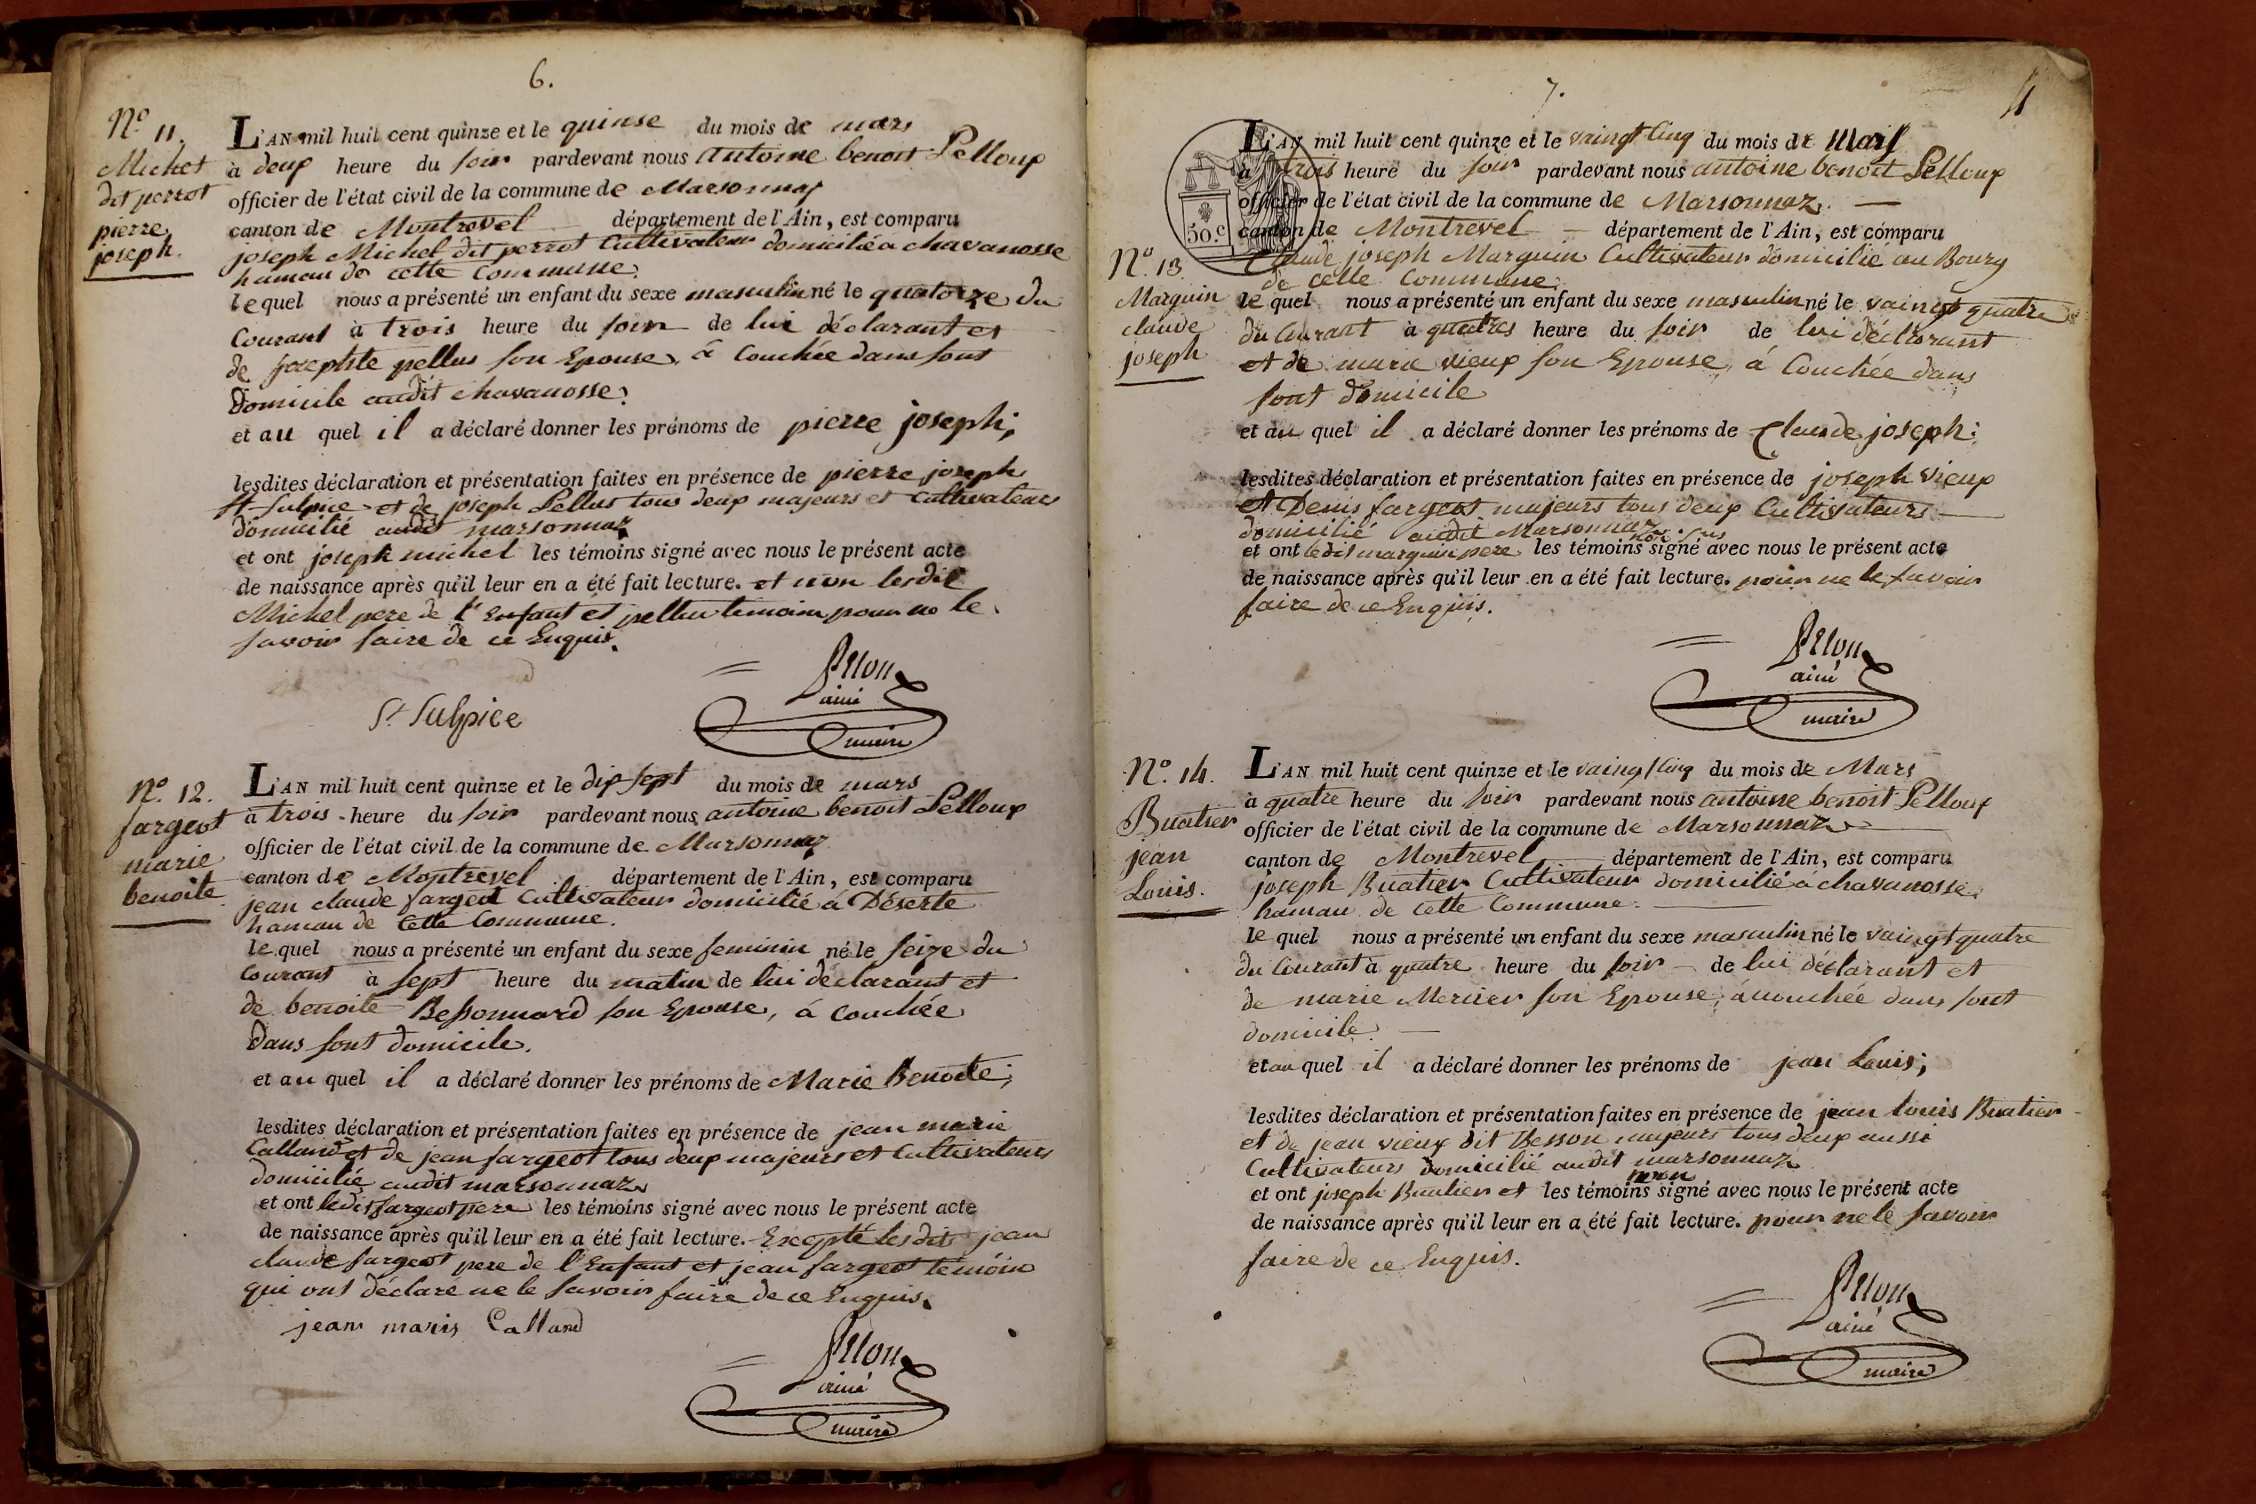 6.
N.o 11.
Michel
dit perrot
pierre
joseph.
L'AN mil huit cent quinze et le quinse du mois de mars
à deux heure du soir pardevant nous antoine benoit Pelloux
officier de l'état civil de la commune de Marsonnaz
canton de Montrevel département de l'Ain, est comparu
joseph Michel dit perrot Cultivateur domicilié a chavanosse
hameau de cette Commune.
lequel nous a présenté un enfant du sexe masculin né le quatorze du
Courant à trois heure du soir de lui déclarant et
de josephte pellus son Epouse, á Couchée dans sont
domicile audit chavanosse.
et au quel il a déclaré donner les prénoms de pierre joseph;
lesdites déclaration et présentation faites en présence de pierre joseph
St. Sulpice et de joseph Pellus tous deux majeurs et Cultivateurs
domicilié audit marsonnaz
et ont joseph michel les témoins signé avec nous le présent acte
de naissance après qu'il leur en a été fait lecture. et non lesdit
Michel pere de l'Enfant et pellus temoin pour ne le
savoir faire de ce Enquis.
St Sulpice
Pelloux
ainé
maire
N.o 12.
fargeot
marie
benoite
L'AN mil huit cent quinze et le dix sept du mois de mars
à trois heure du soir pardevant nous antoine benoit Pelloux
officier de l'état civil de la commune de Marsonnaz
canton de Montrevel département de l'Ain, est comparu
jean claude fargeot Cultivateur domicilié á Déserte
hameau de Cette Commune.
le quel nous a présenté un enfant du sexe feminin né le seize du
Courant à sept heure du matin de lui déclarant et
de benoite Bessonnard son Epouse, á couchée
dans sont domicile.
et au quel il a déclaré donner les prénoms de Marie Benoite;
lesdites déclaration et présentation faites en présence de jean marie
Calland et de jean fargeot tous deux majeurs et Cultivateurs
domicilié audit marsonnaz
et ont ledit fargeot pere les témoins signé avec nous le présent acte
de naissance après qu'il leur en a été fait lecture. Excepté lesdits jean
claude fargeot pere de l'Enfant et jean fargeot témoin
qui ont déclaré ne le savoir faire de ce Enquis.
jean marie Calland
Pelloux
ainé
maire
7.
4
50.c
N.o 13.
Marguin
claude
joseph
L'AN mil huit cent quinze et le vaingt cinq du mois de Mars
à trois heure du soir pardevant nous antoine benoit Pelloux
officier de l'état civil de la commune de Marsonnaz.
canton de Montrevel département de l'Ain, est comparu
Claude joseph Marguin Cultivateur domicilié au Bourg
de cette Commune.
le quel nous a présenté un enfant du sexe masculin né le vaingt quatre
du Courant à quatres heure du soir de lui déclarant
et de marie vieux son Epouse, á Couchée dans
sont domicile
et au quel il a déclaré donner les prénoms de Claude joseph;
lesdites déclaration et présentation faites en présence de joseph vieux
et Denis fargeot majeurs tous deux Cultivateurs
domicilié audit Marsonnaz
non
et ont ledit marguin pere les témoins signé avec nous le présent acte
de naissance après qu'il leur en a été fait lecture. pour ne le savoir
faire de ce Enquis.
Pelloux
ainé
maire
N.o 14.
Buatier
jean
Louis.
L'AN mil huit cent quinze et le vaingt cinq du mois de Mars
à quatre heure du soir pardevant nous antoine benoit Pelloux
officier de l'état civil de la commune de Marsonnaz
canton de Montrevel département de l'Ain, est comparu
joseph Buatier Cultivateur domicilié á chavanosse
hamau de cette Commune.
le quel nous a présenté un enfant du sexe masculin né le vaingt quatre
du Courant à quatre heure du soir de lui déclarant et
de marie Mercier son Epouse, acouchée dans sont
domicile.
et au quel il a déclaré donner les prénoms de jean Louis;
lesdites déclaration et présentation faites en présence de jean louis Buatier
et de jean vieux dit Besson majeurs tous deux aussi
Cultivateurs domicilié audit marsonnaz
non
et ont joseph Buatier et les témoins signé avec nous le présent acte
de naissance après qu'il leur en a été fait lecture. pour ne le savoir
faire de ce Enquis.
Pelloux
ainé
maire